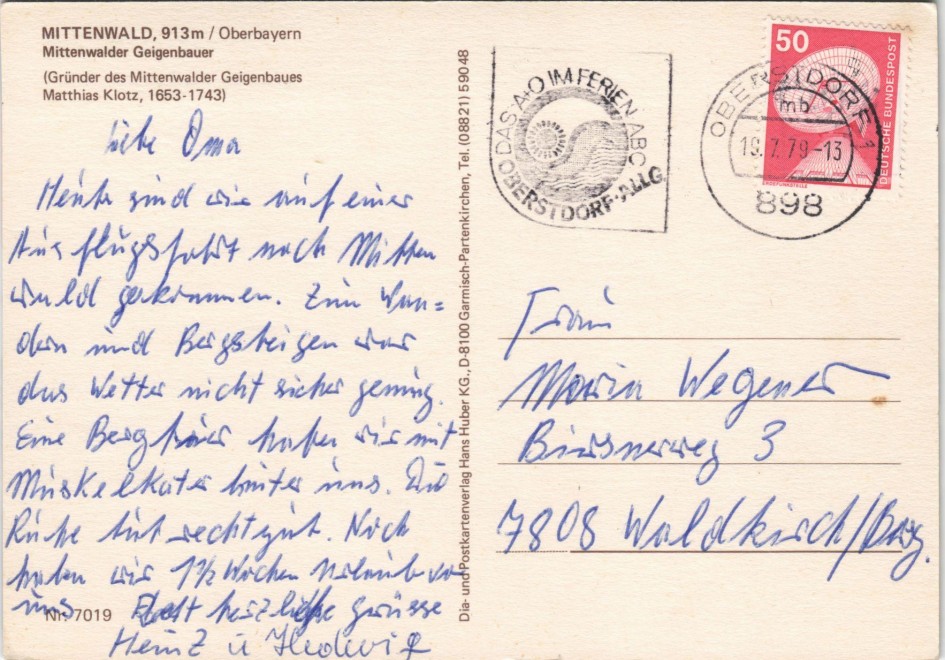 MITTENWALD, 913m / Oberbayern
Mittenwalder Geigenbauer
(Gründer des Mittenwalder Geigenbaues
Matthias Klotz, 1653-1743)
Liebe Oma
Heute sind wir auf einer
Ausflugsfahrt nach Mitten
wald gekommen. Zum Wan=
dern und Bergsteigen war
das Wetter nicht sicher genug.
Eine Bergtour haben wir mit
Muskelkater hinter uns. Die
Ruhe tut recht gut. Noch
haben wir 1½ Wochen Urlaub vor
uns herzliche grüsse
Heinz u Hedwig
Nr. 7019
Dia- und Postkartenverlag Hans Huber KG., D-8100 Garmisch-Partenkirchen, Tel. (08821) 59048
DAS A+O IM FERIEN ABC
OBERSTDORF-ALLG
OBERSTDORF 1
mb
19.7.79-13
898
50
DEUTSCHE BUNDESPOST
ERDEFUNKSTELLE
Frau
Maria Wegener
3
7808 Waldkirch/Brsg.